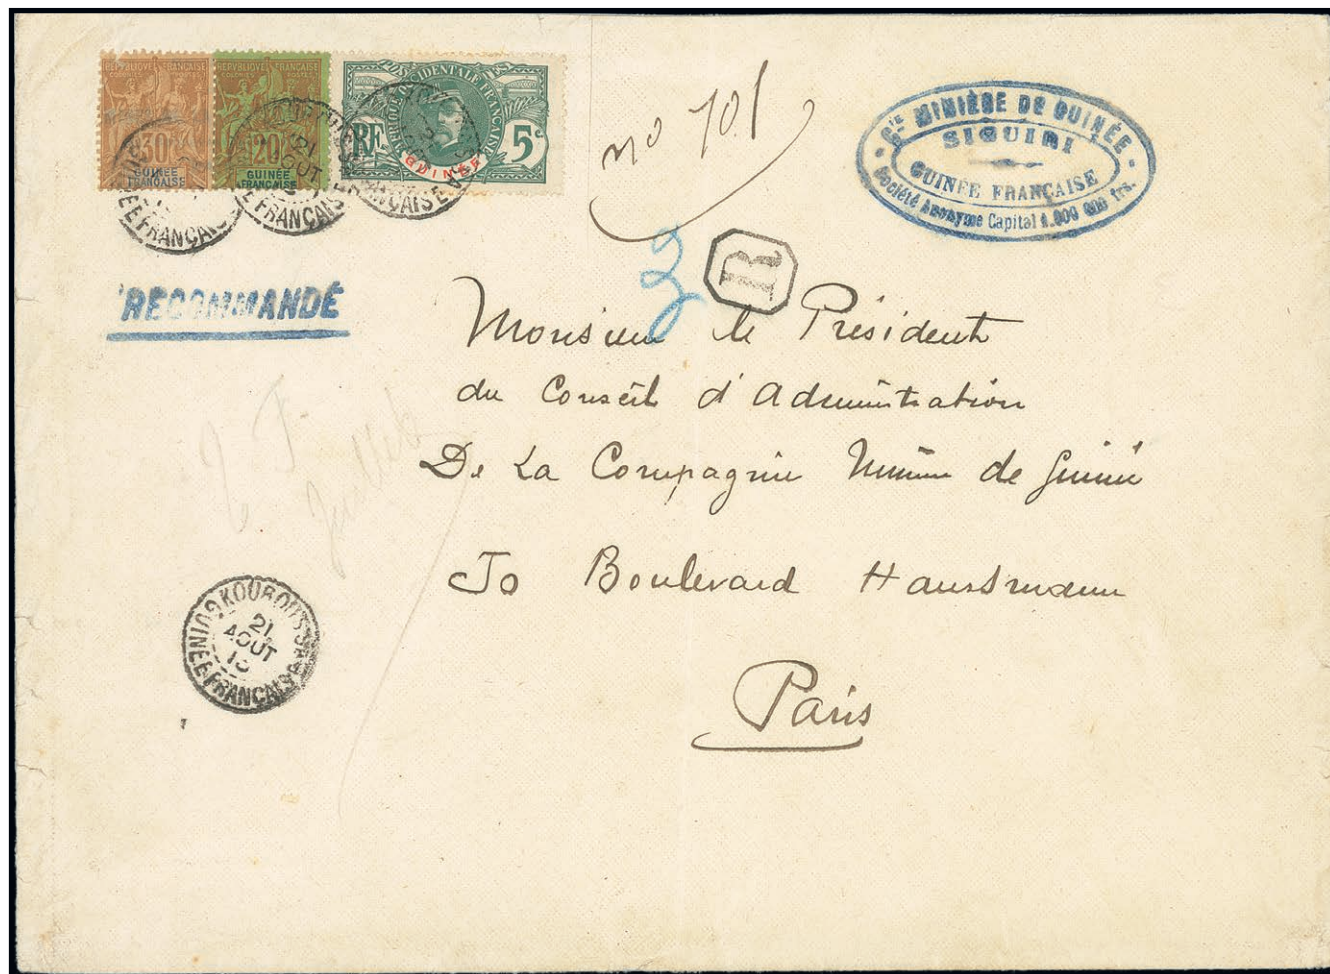 RÉPUBLIQUE FRANÇAISE
COLONIES POSTES
30
GUINÉE
FRANÇAISE
RÉPUBLIQUE FRANÇAISE
COLONIES POSTES
20
GUINÉE
FRANÇAISE
AFRIQUE OCCIDENTALE FRANÇAISE
RF
5c
GUINÉE
21
AOUT
GUINÉE FRANÇAISE
no 701
Cie MINIÈRE DE GUINÉE
SIGUIRI
GUINÉE FRANÇAISE
Société Anonyme Capital 1.000 000 frs.
R
RECOMMANDÉ
Monsieur le Président
du Conseil d'Administration
De La Compagnie Minière de Guinée
Jo Boulevard Haussmann
Paris
KOUROUSSA
21
AOUT
GUINÉE FRANÇAISE